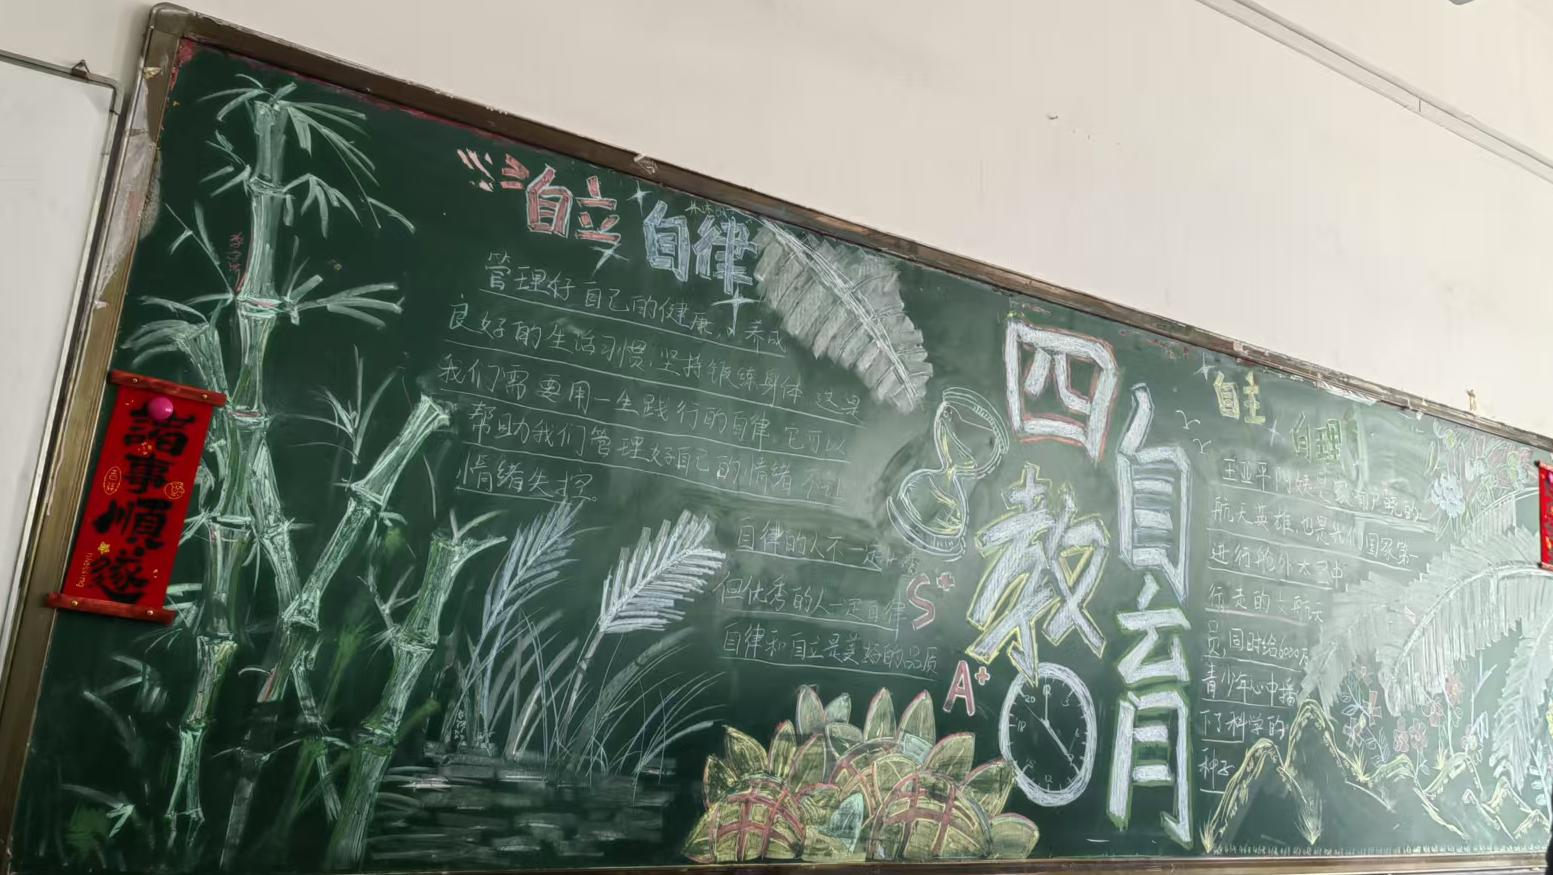 諸事順遂
自立 自律
管理好自己的健康，养成
良好的生活习惯 坚持锻练身体 这是
我们需要用一生践行的自律 它可以
帮助我们管理好自己的情绪
情绪失控。
自律的人不一定
但优秀的人一定自律
自律和自立是美好的品质
S+
A+
四自教育
自主
自理
王亚平
航天英雄 也是我们国家第一
进行
行走的女航天
员，同时给6000万
青少年心中播
下了科学的
种子